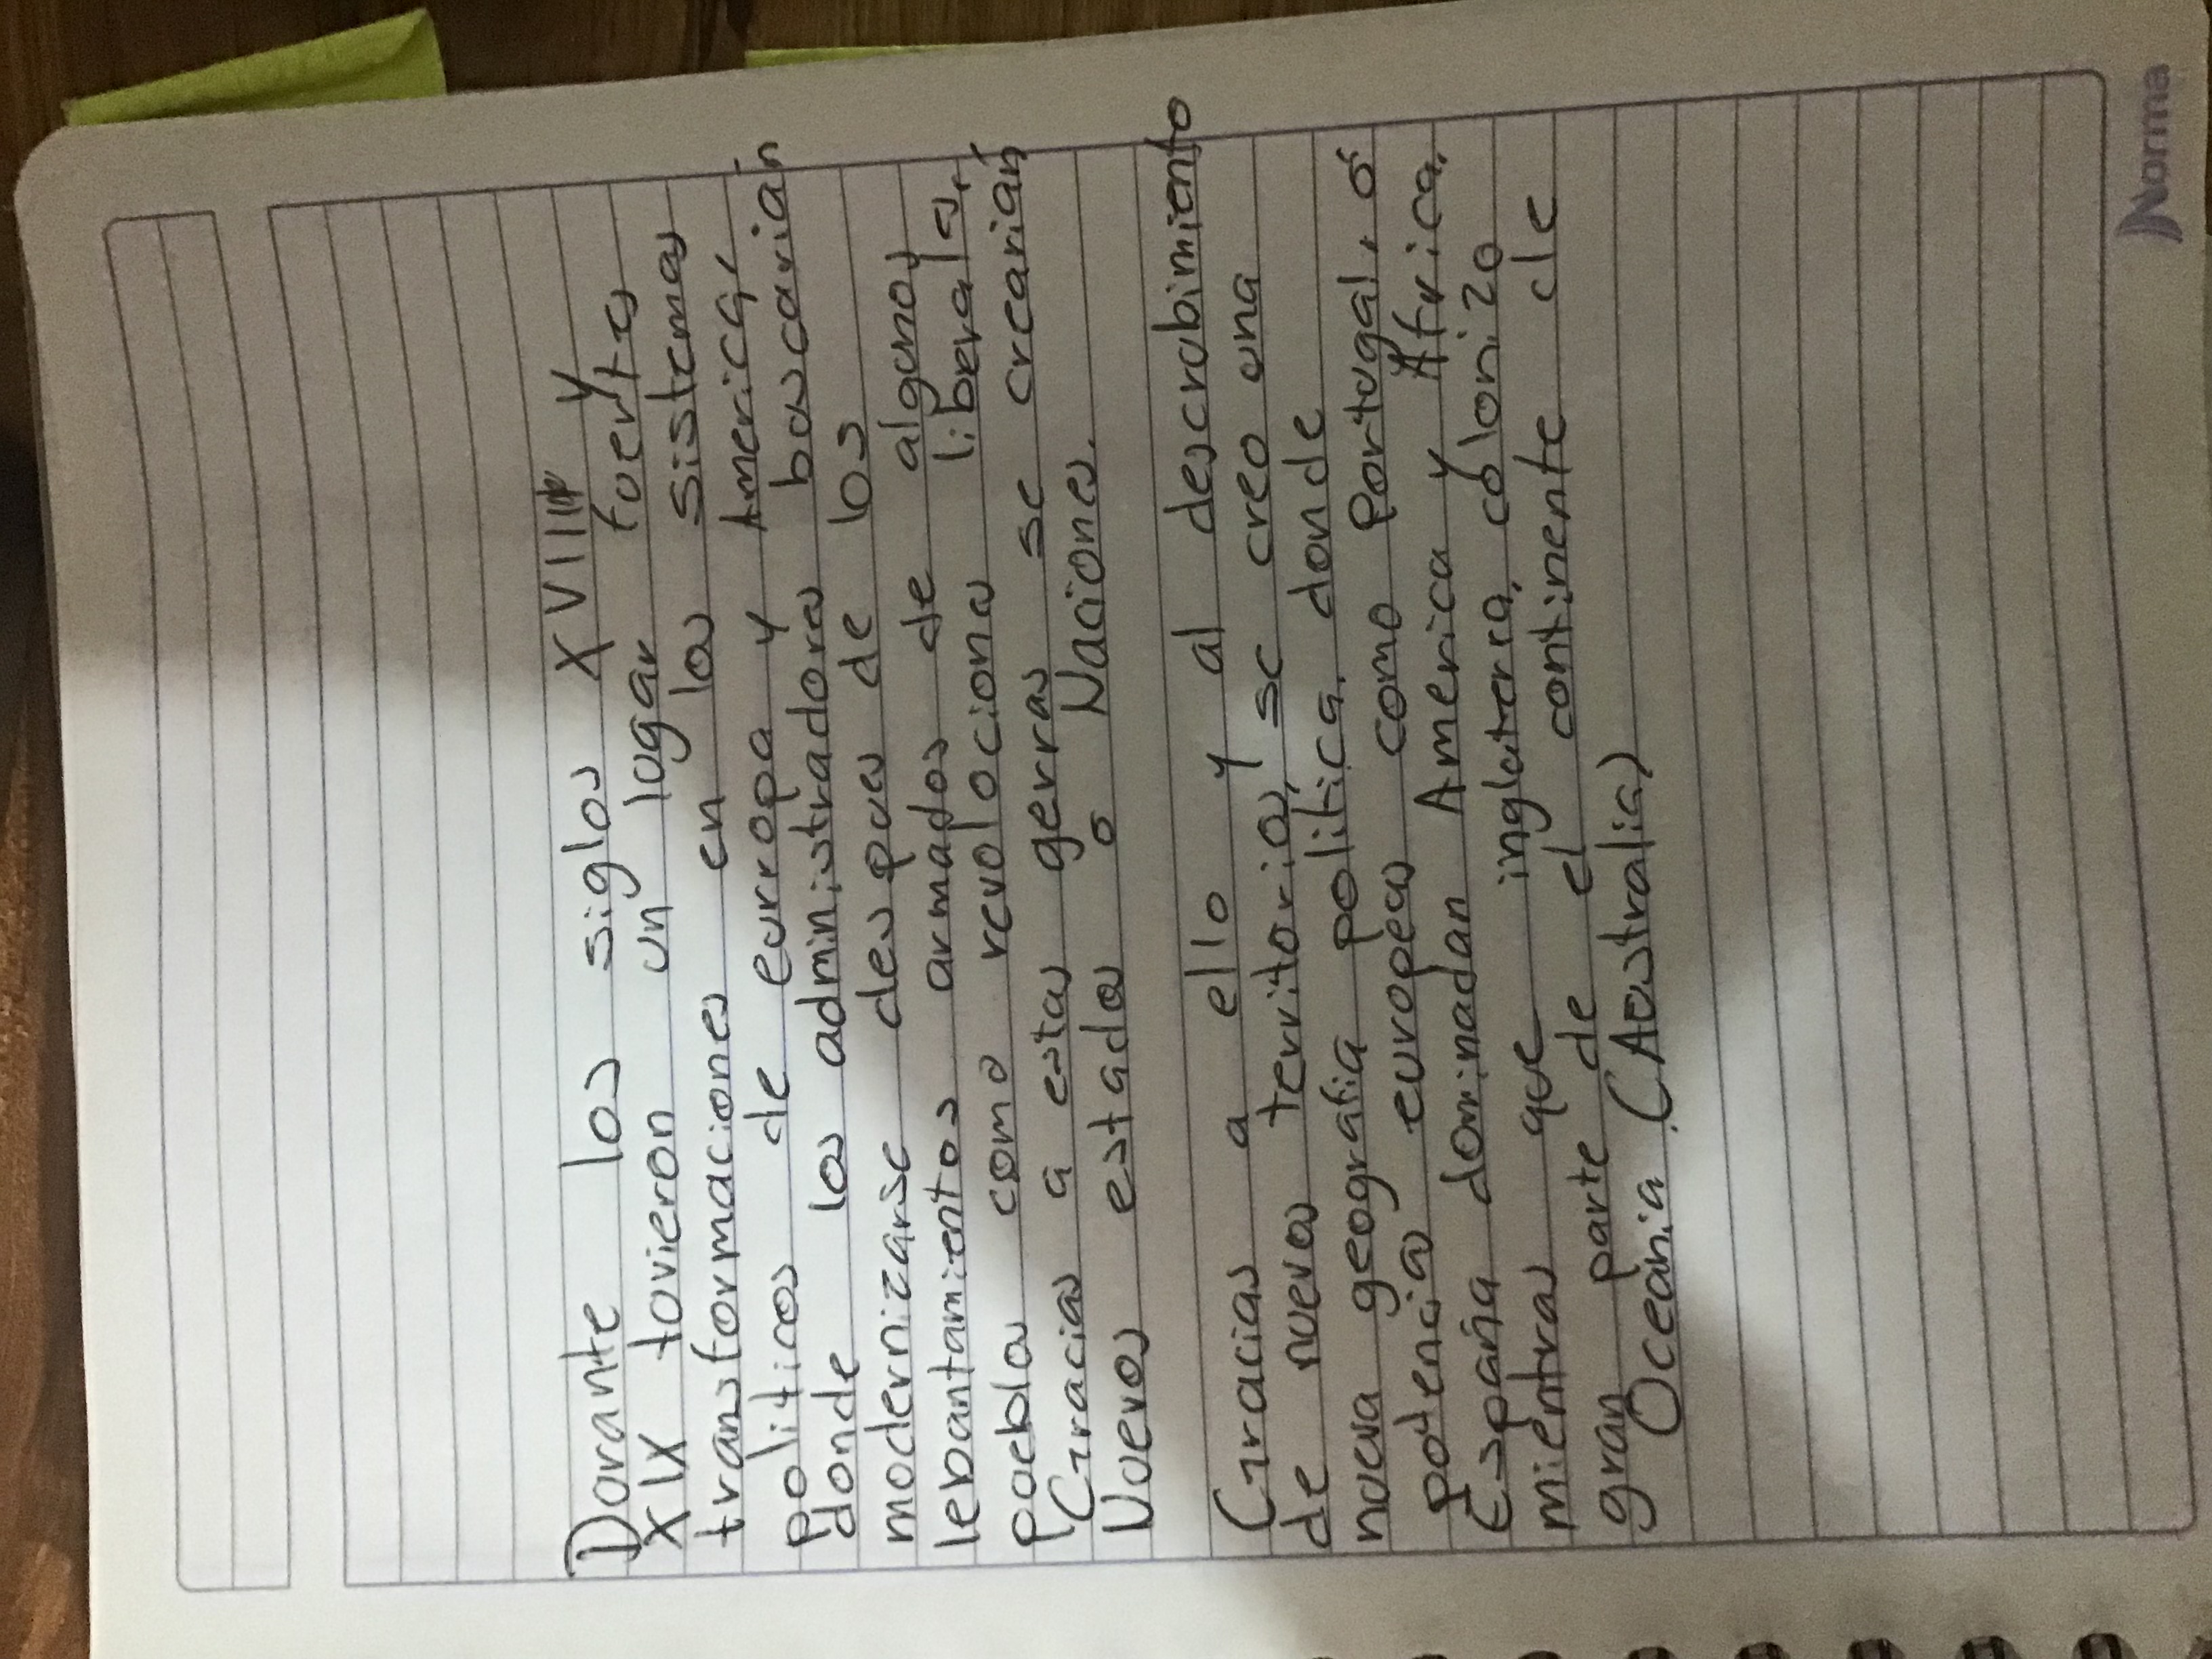 Durante los siglos XVIII y
XIX tuvieron un lugar fuertes
transformaciones en los sistemas
politicos de eurropa y America,
donde los administradores buscarian
modernizarse despues de los
lebantamientos armados de algunos
pueblos como revoluciona liberales,
Gracias a estas gerras se crearian
Nuevos estados o Naciones.
Gracias a ello y al descrubimiento
de nuevos territorios, se creo una
nueva geografia politica. donde
potencias europeas como Portugal, ó
España dominadan America y Africa.
mientras que inglaterra, colonizo
gran parte de el continente de
Oceania (Australia)
Norma